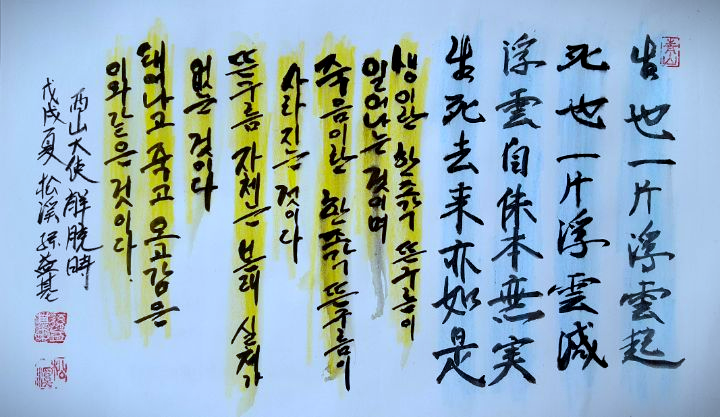 生也一片浮雲起
死也一片浮雲滅
浮雲自体本無実
生死去来亦如是
생이란 한조각 뜬구름이
일어나는 것이며
죽음이란 한조각 뜬구름이
사라지는 것이다
뜬구름 자체는 본래 실체가
없는 것이다
태어나고 죽고 오고감은
이와같은 것이다.
西山大使 解脫時
戊戌夏 松溪 孫益基
松溪